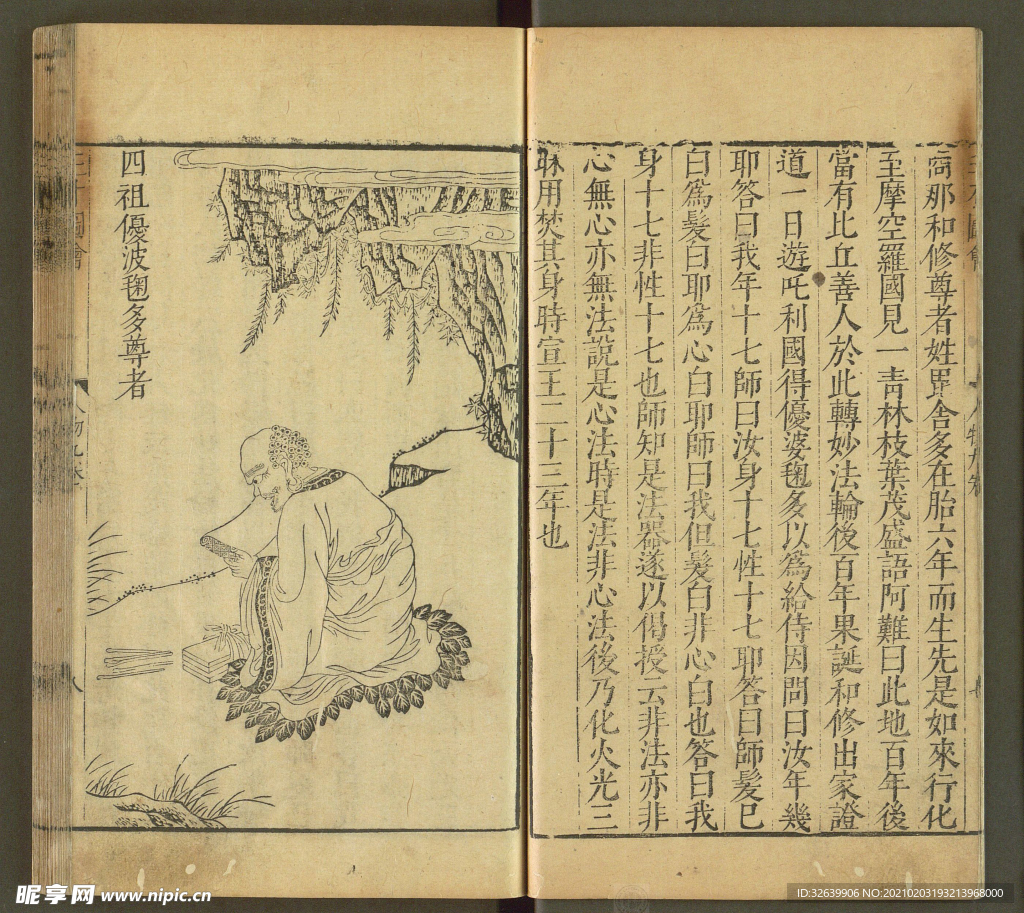 啇那和修尊者姓毘舍多在胎六年而生先是如來行化
至摩空羅國見一靑林枝葉茂盛語阿難曰此地百年後
當有比丘善人於此轉妙法輪後百年果誕和修出家證
道一日遊吒利國得優婆毱多以爲給侍因問曰汝年幾
耶答曰我年十七師曰汝身十七性十七耶答曰師髮已
白爲髮白耶爲心白耶師曰我但髮白非心白也答曰我
身十七非性十七也師知是法器遂以偈授云非法亦非
心無心亦無法說是心法時是法非心法後乃化火光三
昧用焚其身時宣王二十三年也
四祖優波毱多尊者
三才圖會
人物九卷
八
昵享网 www.nipic.cn
ID:32639906 NO:20210203193213968000